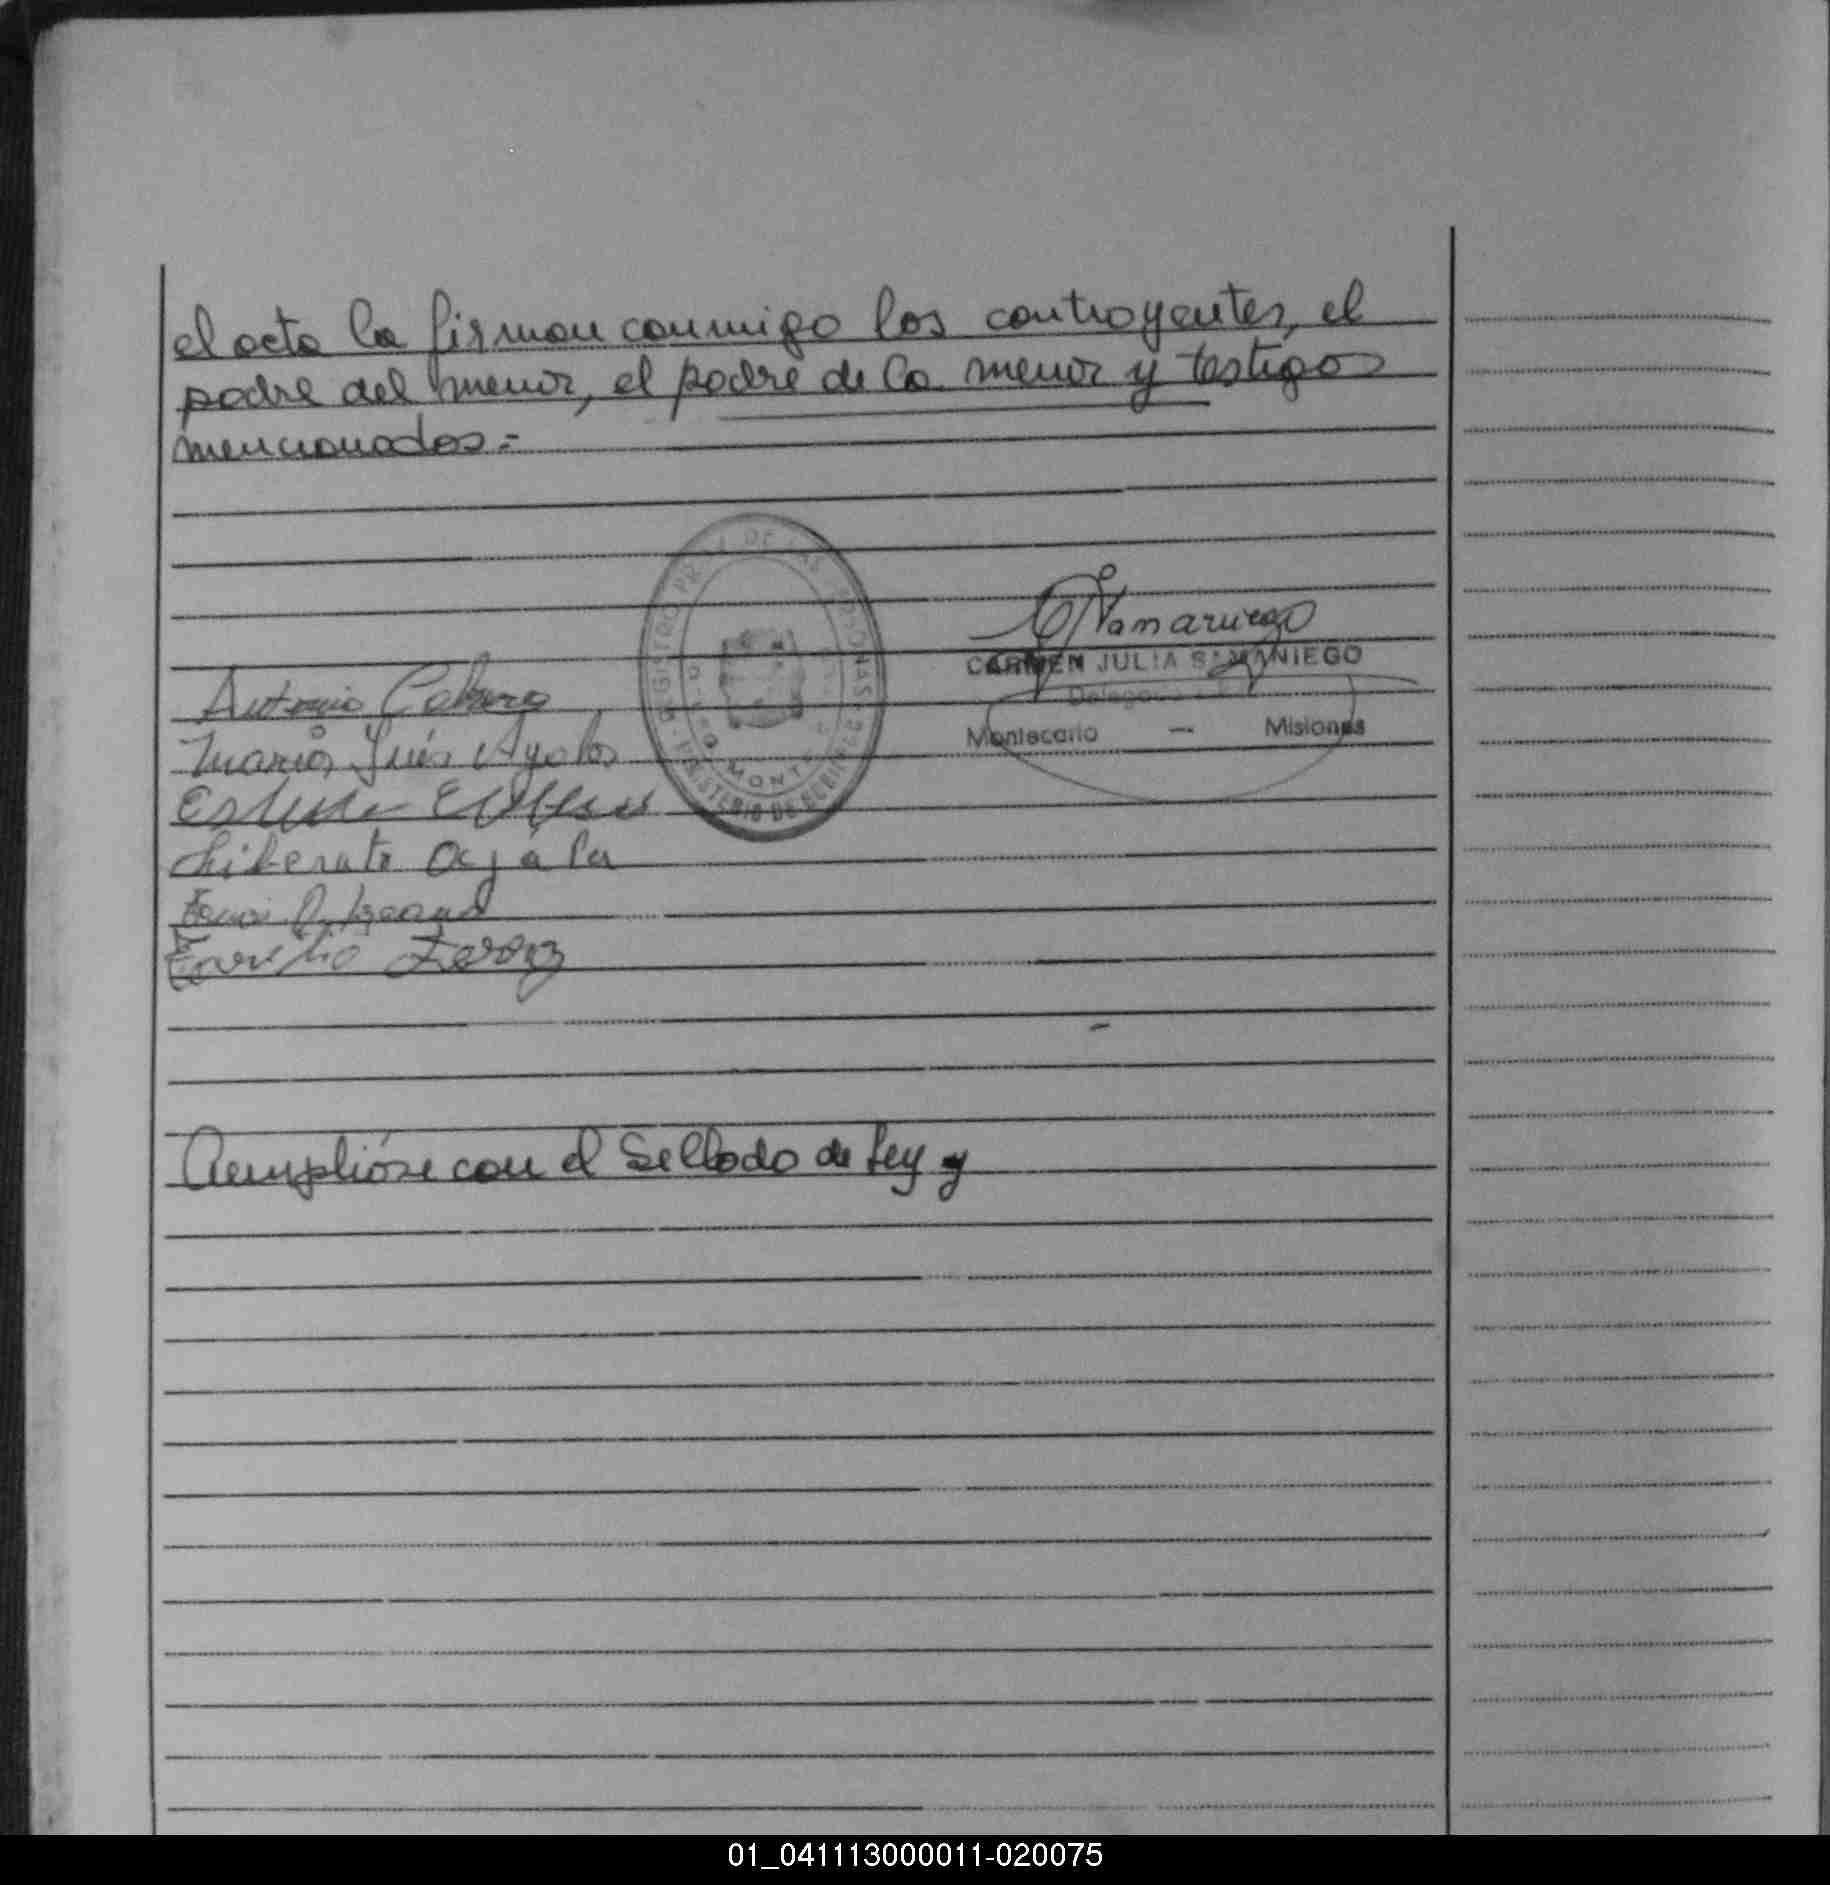 el acta la firman conmigo los contrayentes, el
padre del menor, el padre de la menor y testigos
mencionados.=
REGISTRO DE LAS PERSONAS
MINISTERIO DE GOBIERNO
MONTE
Samaniego
CARMEN JULIA SAMANIEGO
Delegada
Montecarlo — Misiones
Antonio Cabrera
María Inés Ayala
Liberato Ayala
Cumplióse con el Sellado de Ley y
01_041113000011-020075